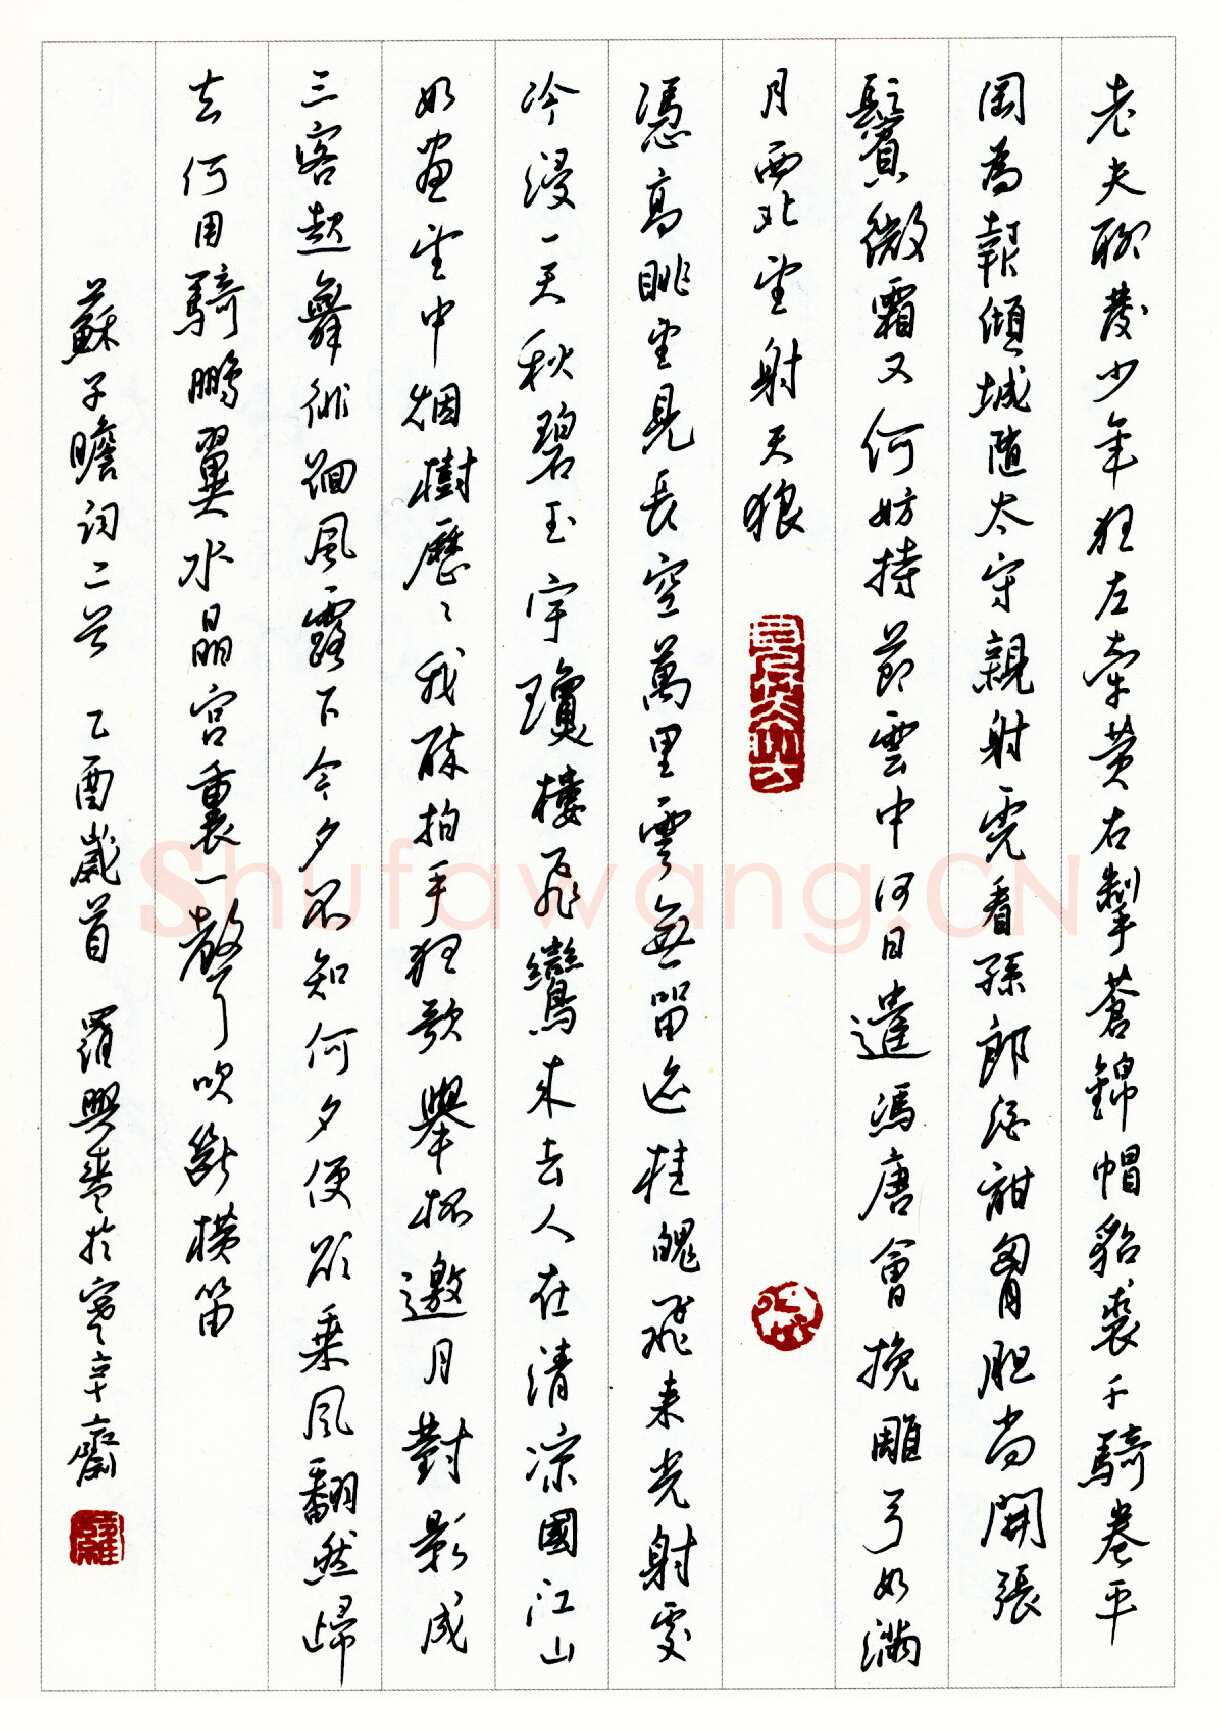 老夫聊發少年狂左牽黃右擎蒼錦帽貂裘千騎卷平
岡為報傾城隨太守親射虎看孫郎酒酣胸胆尚開張
鬢微霜又何妨持節雲中何日遣馮唐會挽雕弓如滿
月西北望射天狼
憑高眺望見長空萬里雲無留迹桂魄飛來光射處
冷浸一天秋碧玉宇瓊樓飛鸞來去人在清涼國江山
如畫望中烟樹歷〻我醉拍手狂歌舉杯邀月對影成
三客起舞徘徊風露下今夕不知何夕便欲乘風翻然歸
去何用騎鵬翼水晶宮裏一聲吹斷橫笛
蘇子瞻詞二首 乙酉歲首 羅興書於寒辛齋
Shufawang.CN